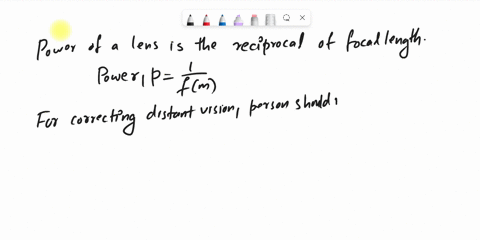 Power of a lens is the reciprocal of focal length.
Power, P = 1/f(m)
For correcting distant vision, person should